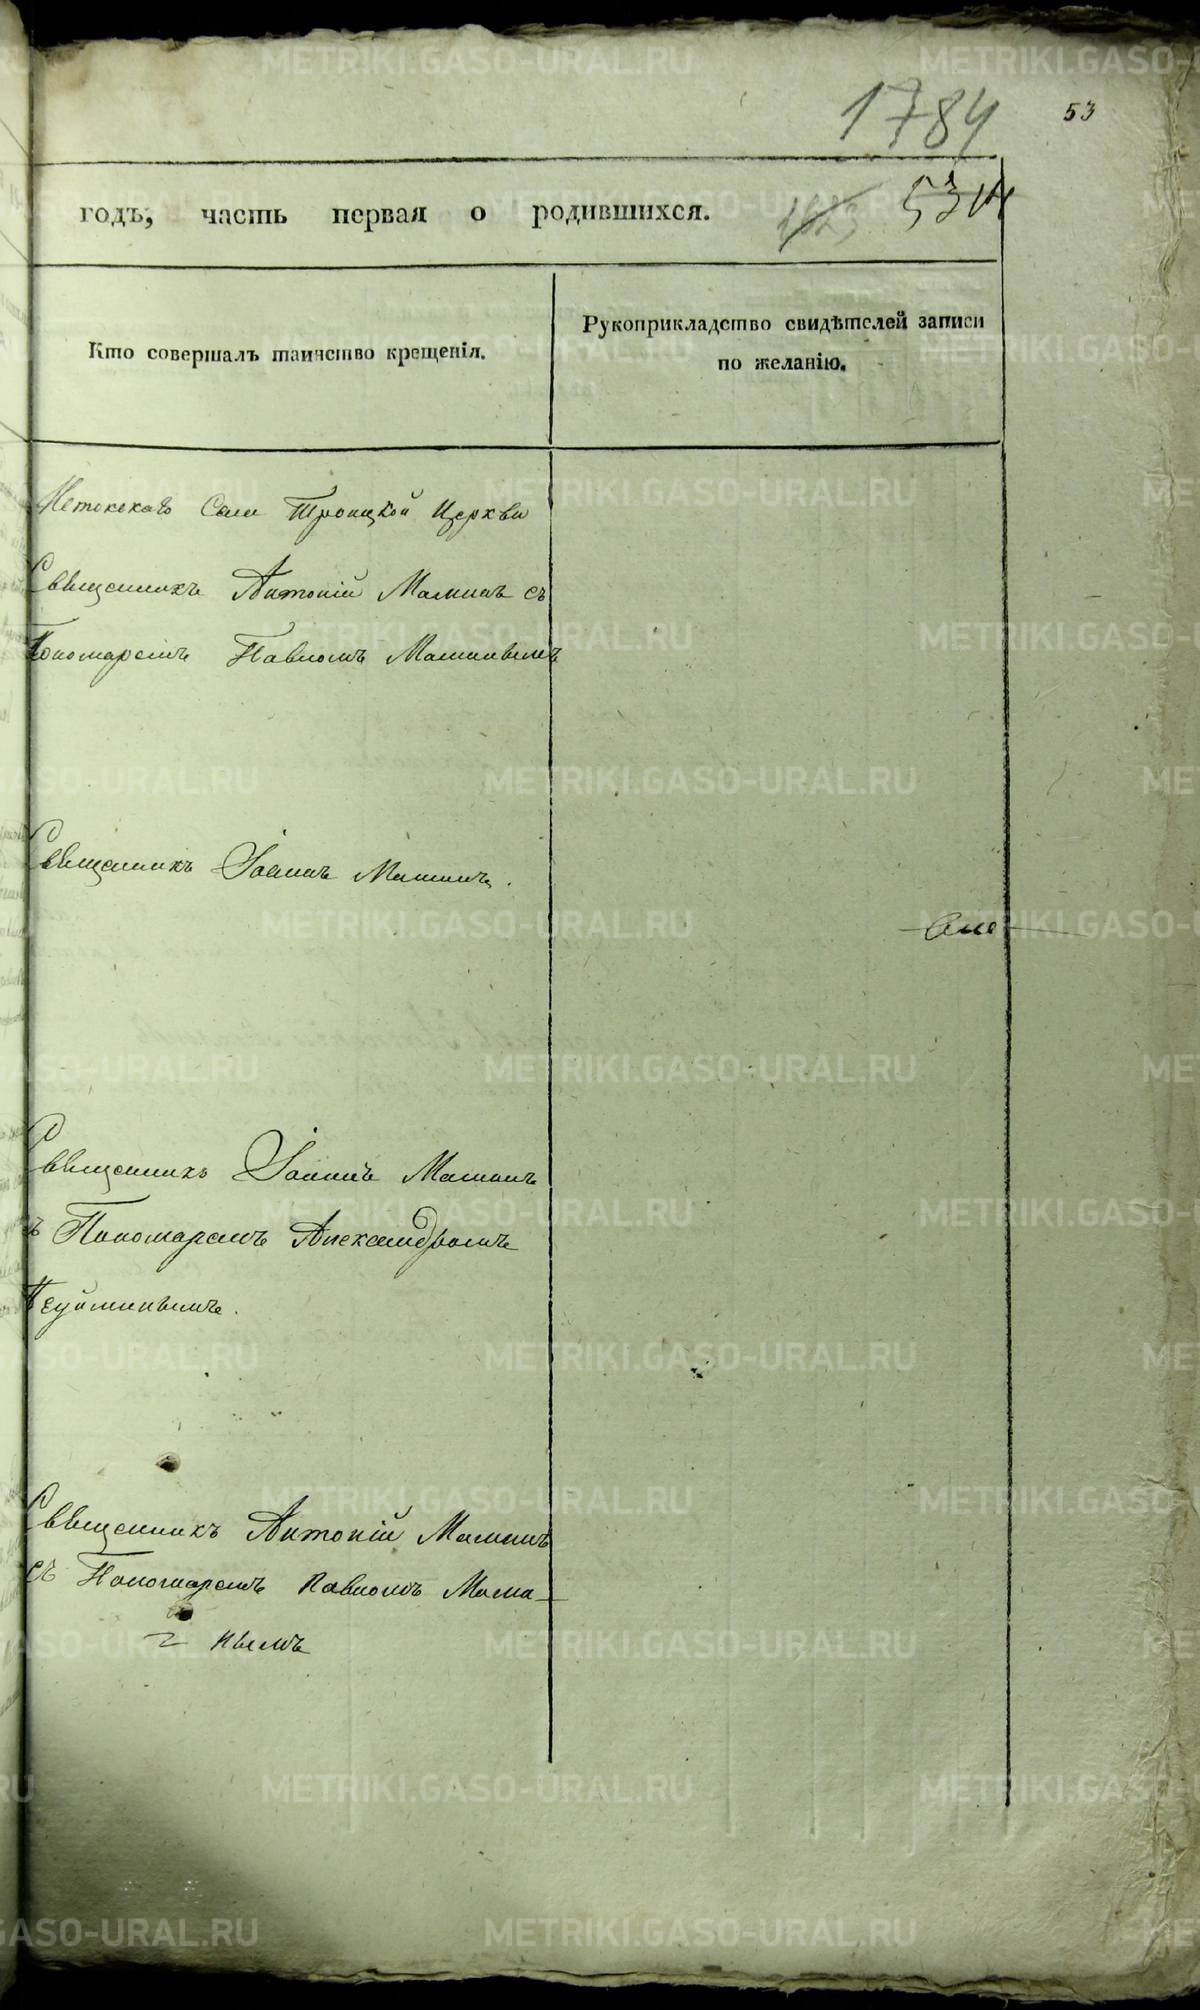 1784
53
годъ, часть первая о родившихся.
Кто совершалъ таинство крещенія.
Рукоприкладство свидѣтелей записи
по желанію.
Тойжекаго Села Троицкой Церкви
Священникъ Антоній Маминъ съ
Пономаремъ Павломъ Маминымъ
Священникъ Іоаннъ Маминъ.
Священникъ Іоаннъ Маминъ
съ Пономаремъ Александромъ
Пеуйминымъ.
Священникъ Антоній Маминъ
съ Пономаремъ Павломъ Мама-
нымъ
METRIKI.GASO-URAL.RU